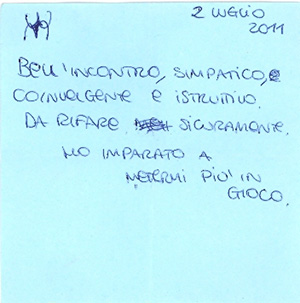 2 LUGLIO
2011
BELL'INCONTRO, SIMPATICO, E
COINVOLGENTE E ISTRUTTIVO.
DA RIFARE SICURAMENTE.
HO IMPARATO A
METERMI PIU' IN
GIOCO.